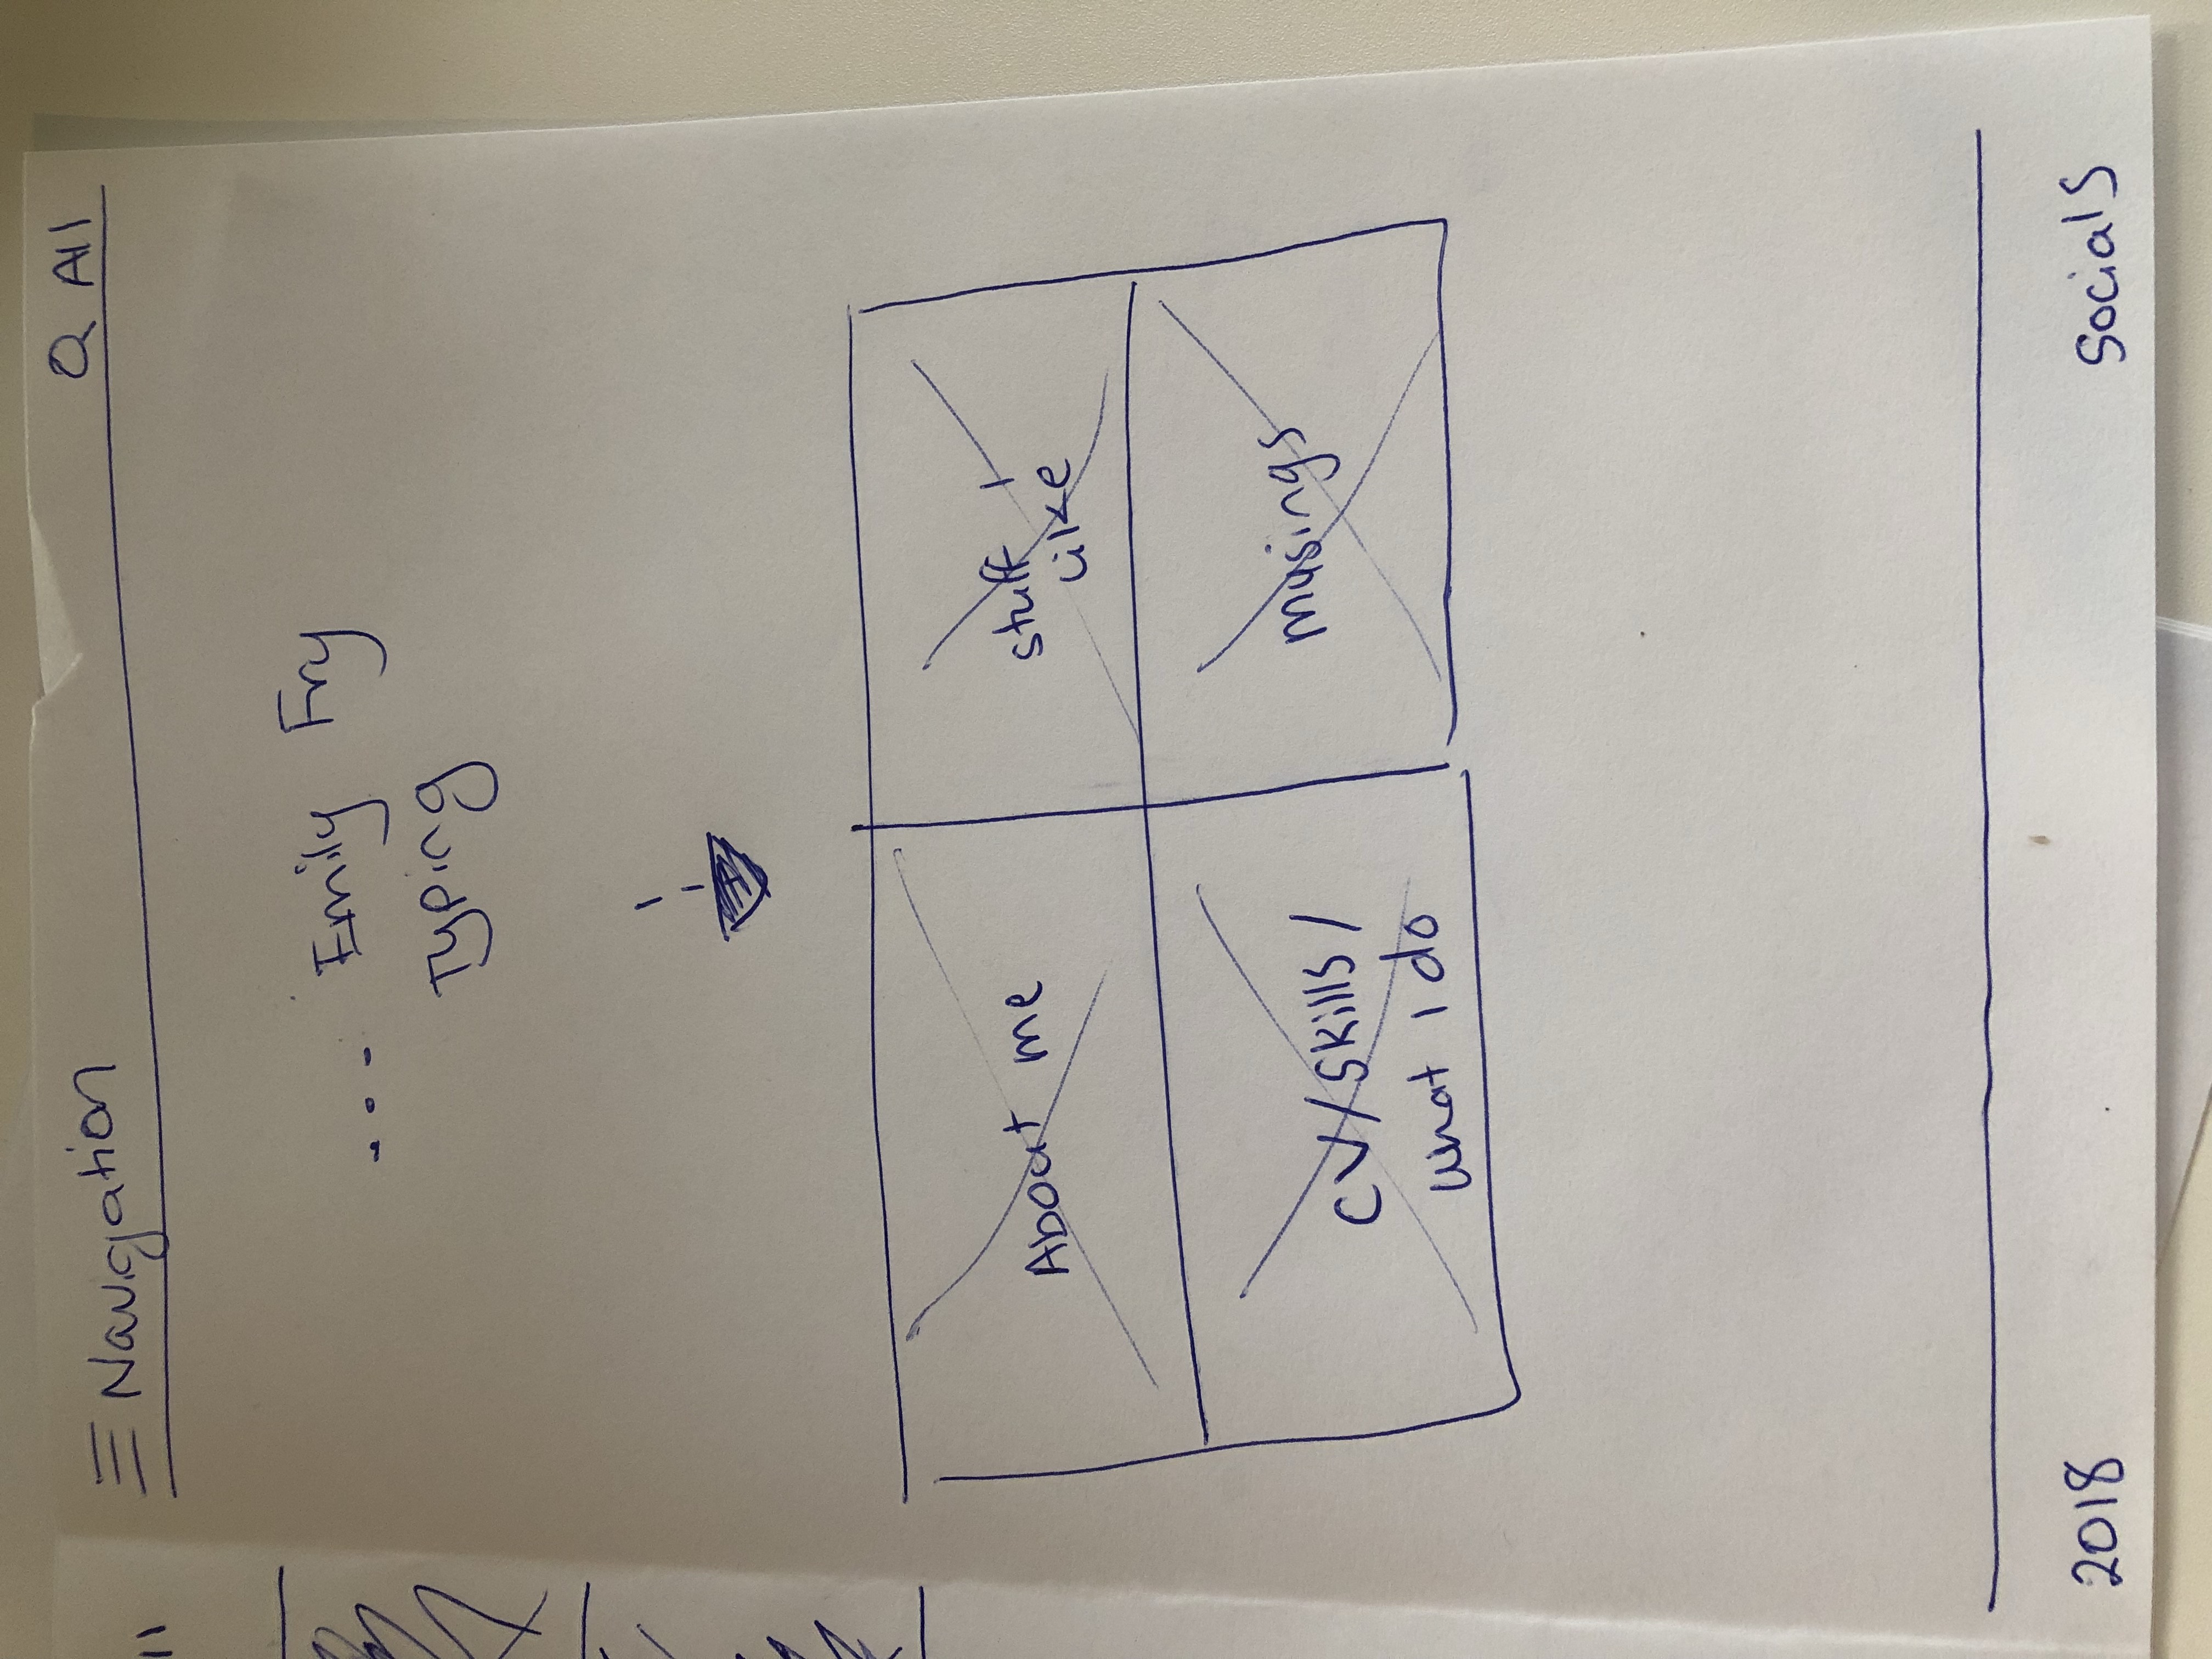 Navigation
All
... Emily Fry
Typing
About me
stuff I
like
CV/Skills/
what I do
musings
2018
Socials